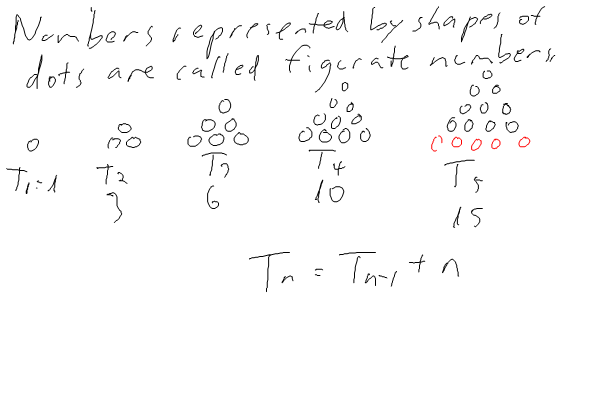 Numbers represented by shapes of
dots are called figurate numbers.
T1=1 T2 T3 T4 T5
3 6 10 15
Tn = Tn-1 + n